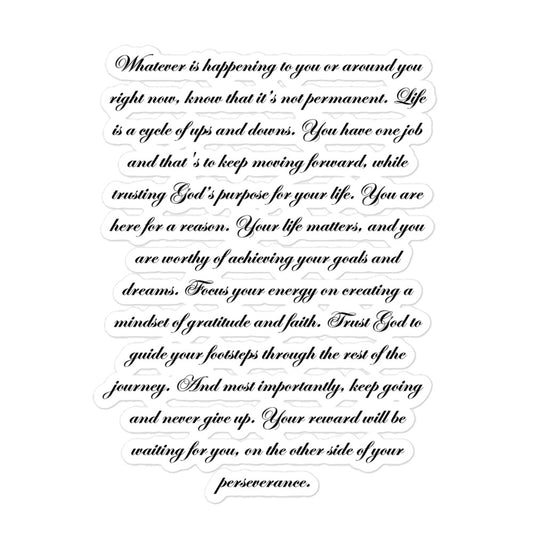 Whatever is happening to you or around you
right now, know that it's not permanent. Life
is a cycle of ups and downs. You have one job
and that 's to keep moving forward, while
trusting God's purpose for your life. You are
here for a reason. Your life matters, and you
are worthy of achieving your goals and
dreams. Focus your energy on creating a
mindset of gratitude and faith. Trust God to
guide your footsteps through the rest of the
journey. And most importantly, keep going
and never give up. Your reward will be
waiting for you, on the other side of your
perseverance.